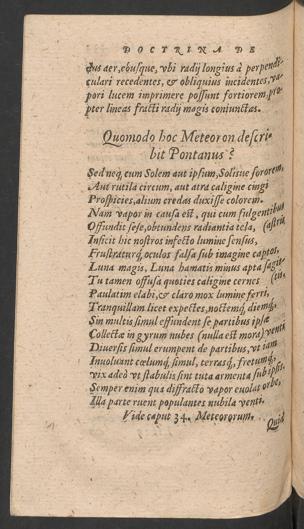 DOCTRINA DE
ctus aer, eousque, vbi radij longius à perpendi-
culari recedentes, & obliquius incidentes, va-
pori lucem imprimere possunt fortiorem, pro-
pter lineas fracti radij magis coniunctas.
Quomodo hoc Meteoron descri-
bit Pontanus?
Sed neq, cum Solem aut ipsum, Solisue sororem,
Aut rutila circum, aut atra caligine cingi
Prospicies, alium credas duxisse colorem.
Nam vapor in causa est, qui cum fulgentibus (astris
Offundit sese, obtundens radiantia tela,
Inficit hic nostros infecto lumine sensus,
Frustraturq, oculos falsa sub imagine captos,
Luna magis, Luna hamatis minus apta sagit- (tis,
Tu tamen offusa quoties caligine cernes
Paulatim elabi, & claro mox lumine ferri,
Tranquillam licet expectes, noctemq, diemq,
Sin multis simul effundent se partibus ipsæ
Collectæ in gyrum nubes (nulla est mora) venti
Diuersis simul erumpent de partibus, vt tam
Inuoluant cœlumq, simul, terrasq, fretumq,
vix adeò vt stabulis sint tuta armenta sub ipsis.
Semper enim qua diffracto vapor euolat orbe,
Illa parte ruent populantes nubila venti.
Vide caput 34. Meteororum.
Quid